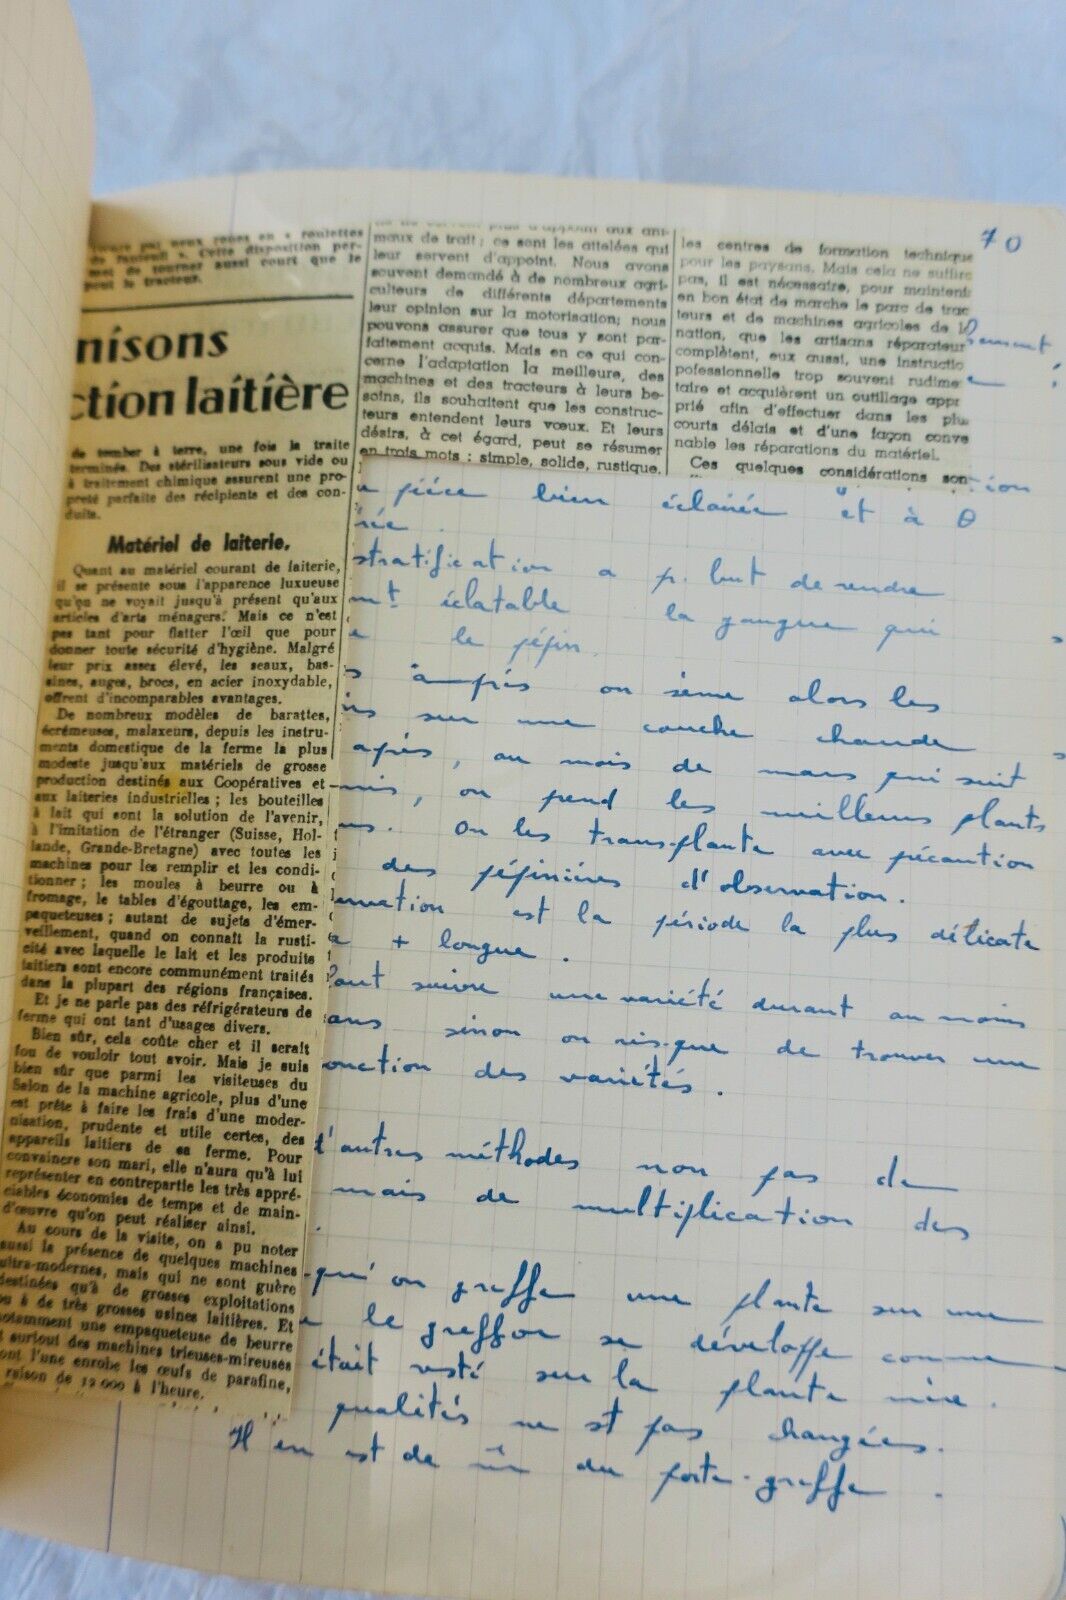 de fauteuil ». Cette disposition per-
met de tourner aussi court que le
peut le tracteur.
nisons
ction laitière
de tomber à terre, une fois la traite
terminée. Des stérilisateurs sous vide ou
à traitement chimique assurent une pro-
preté parfaite des récipients et des con-
duits.
Matériel de laiterie.
Quant au matériel courant de laiterie,
il se présente sous l'apparence luxueuse
qu'on ne voyait jusqu'à présent qu'aux
articles d'arts ménagers. Mais ce n'est
pas tant pour flatter l'œil que pour
donner toute sécurité d'hygiène. Malgré
leur prix assez élevé, les seaux, bas-
sines, auges, brocs, en acier inoxydable,
offrent d'incomparables avantages.
De nombreux modèles de barattes,
écrémeuses, malaxeurs, depuis les instru-
ments domestique de la ferme la plus
modeste jusqu'aux matériels de grosse
production destinés aux Coopératives et
aux laiteries industrielles ; les bouteilles
à lait qui sont la solution de l'avenir,
à l'imitation de l'étranger (Suisse, Hol-
lande, Grande-Bretagne) avec toutes les
machines pour les remplir et les condi-
tionner ; les moules à beurre ou à
fromage, le tables d'égouttage, les em-
paqueteuses ; autant de sujets d'émer-
veillement, quand on connaît la rusti-
cité avec laquelle le lait et les produits
laitiers sont encore communément traités
dans la plupart des régions françaises.
Et je ne parle pas des réfrigérateurs de
ferme qui ont tant d'usages divers.
Bien sûr, cela coûte cher et il serait
fou de vouloir tout avoir. Mais je suis
bien sûr que parmi les visiteuses du
Salon de la machine agricole, plus d'une
est prête à faire les frais d'une moder-
nisation, prudente et utile certes, des
appareils laitiers de sa ferme. Pour
convaincre son mari, elle n'aura qu'à lui
représenter en contrepartie les très appré-
ciables économies de temps et de main-
d'œuvre qu'on peut réaliser ainsi.
Au cours de la visite, on a pu noter
aussi la présence de quelques machines
ultra-modernes, mais qui ne sont guère
destinées qu'à de grosses exploitations
ou à de très grosses usines laitières. Et
notamment une empaqueteuse de beurre
et surtout des machines trieuses-mireuses
dont l'une enrobe les œufs de parafine,
raison de 12.000 à l'heure.
maux de trait ; ce sont les attelées qui
leur servent d'appoint. Nous avons
souvent demandé à de nombreux agri-
culteurs de différents départements
leur opinion sur la motorisation; nous
pouvons assurer que tous y sont par-
faitement acquis. Mais en ce qui con-
cerne l'adaptation la meilleure, des
machines et des tracteurs à leurs be-
soins, ils souhaitent que les construc-
teurs entendent leurs vœux. Et leurs
désirs, à cet égard, peut se résumer
en trois mots : simple, solide, rustique.
les centres de formation technique
pour les paysans. Mais cela ne suffira
pas, il est nécessaire, pour mainteni
en bon état de marche le parc de trac
teurs et de machines agricoles de l
nation, que les artisans réparateur
complètent, eux aussi, une instructio
pofessionnelle trop souvent rudime
taire et acquièrent un outillage appr
prié afin d'effectuer dans les plu
courts délais et d'une façon conve
nable les réparations du matériel.
Ces quelques considérations son
70
tion
pièce bien éclairée et à θ
rée.
stratification a p. but de rendre
mt éclatable la gangue qui
le pépin.
s après on sème alors les
sur une couche chaude
après, au mois de mars qui suit
mis, on prend les meilleurs plants
On les transplante avec précaution
des pépinières d'observation.
est la période la plus délicate
+ longue.
faut suivre une variété durant au moins
ans sinon on risque de trouver une
onction des variétés.
d'autres méthodes non pas de
mais de multiplication des
qu'on greffe une plante sur une
le greffon se développe comme
était resté sur la plante mère.
qualités ne st pas changées.
Il en est de m̂ du porte-greffe.